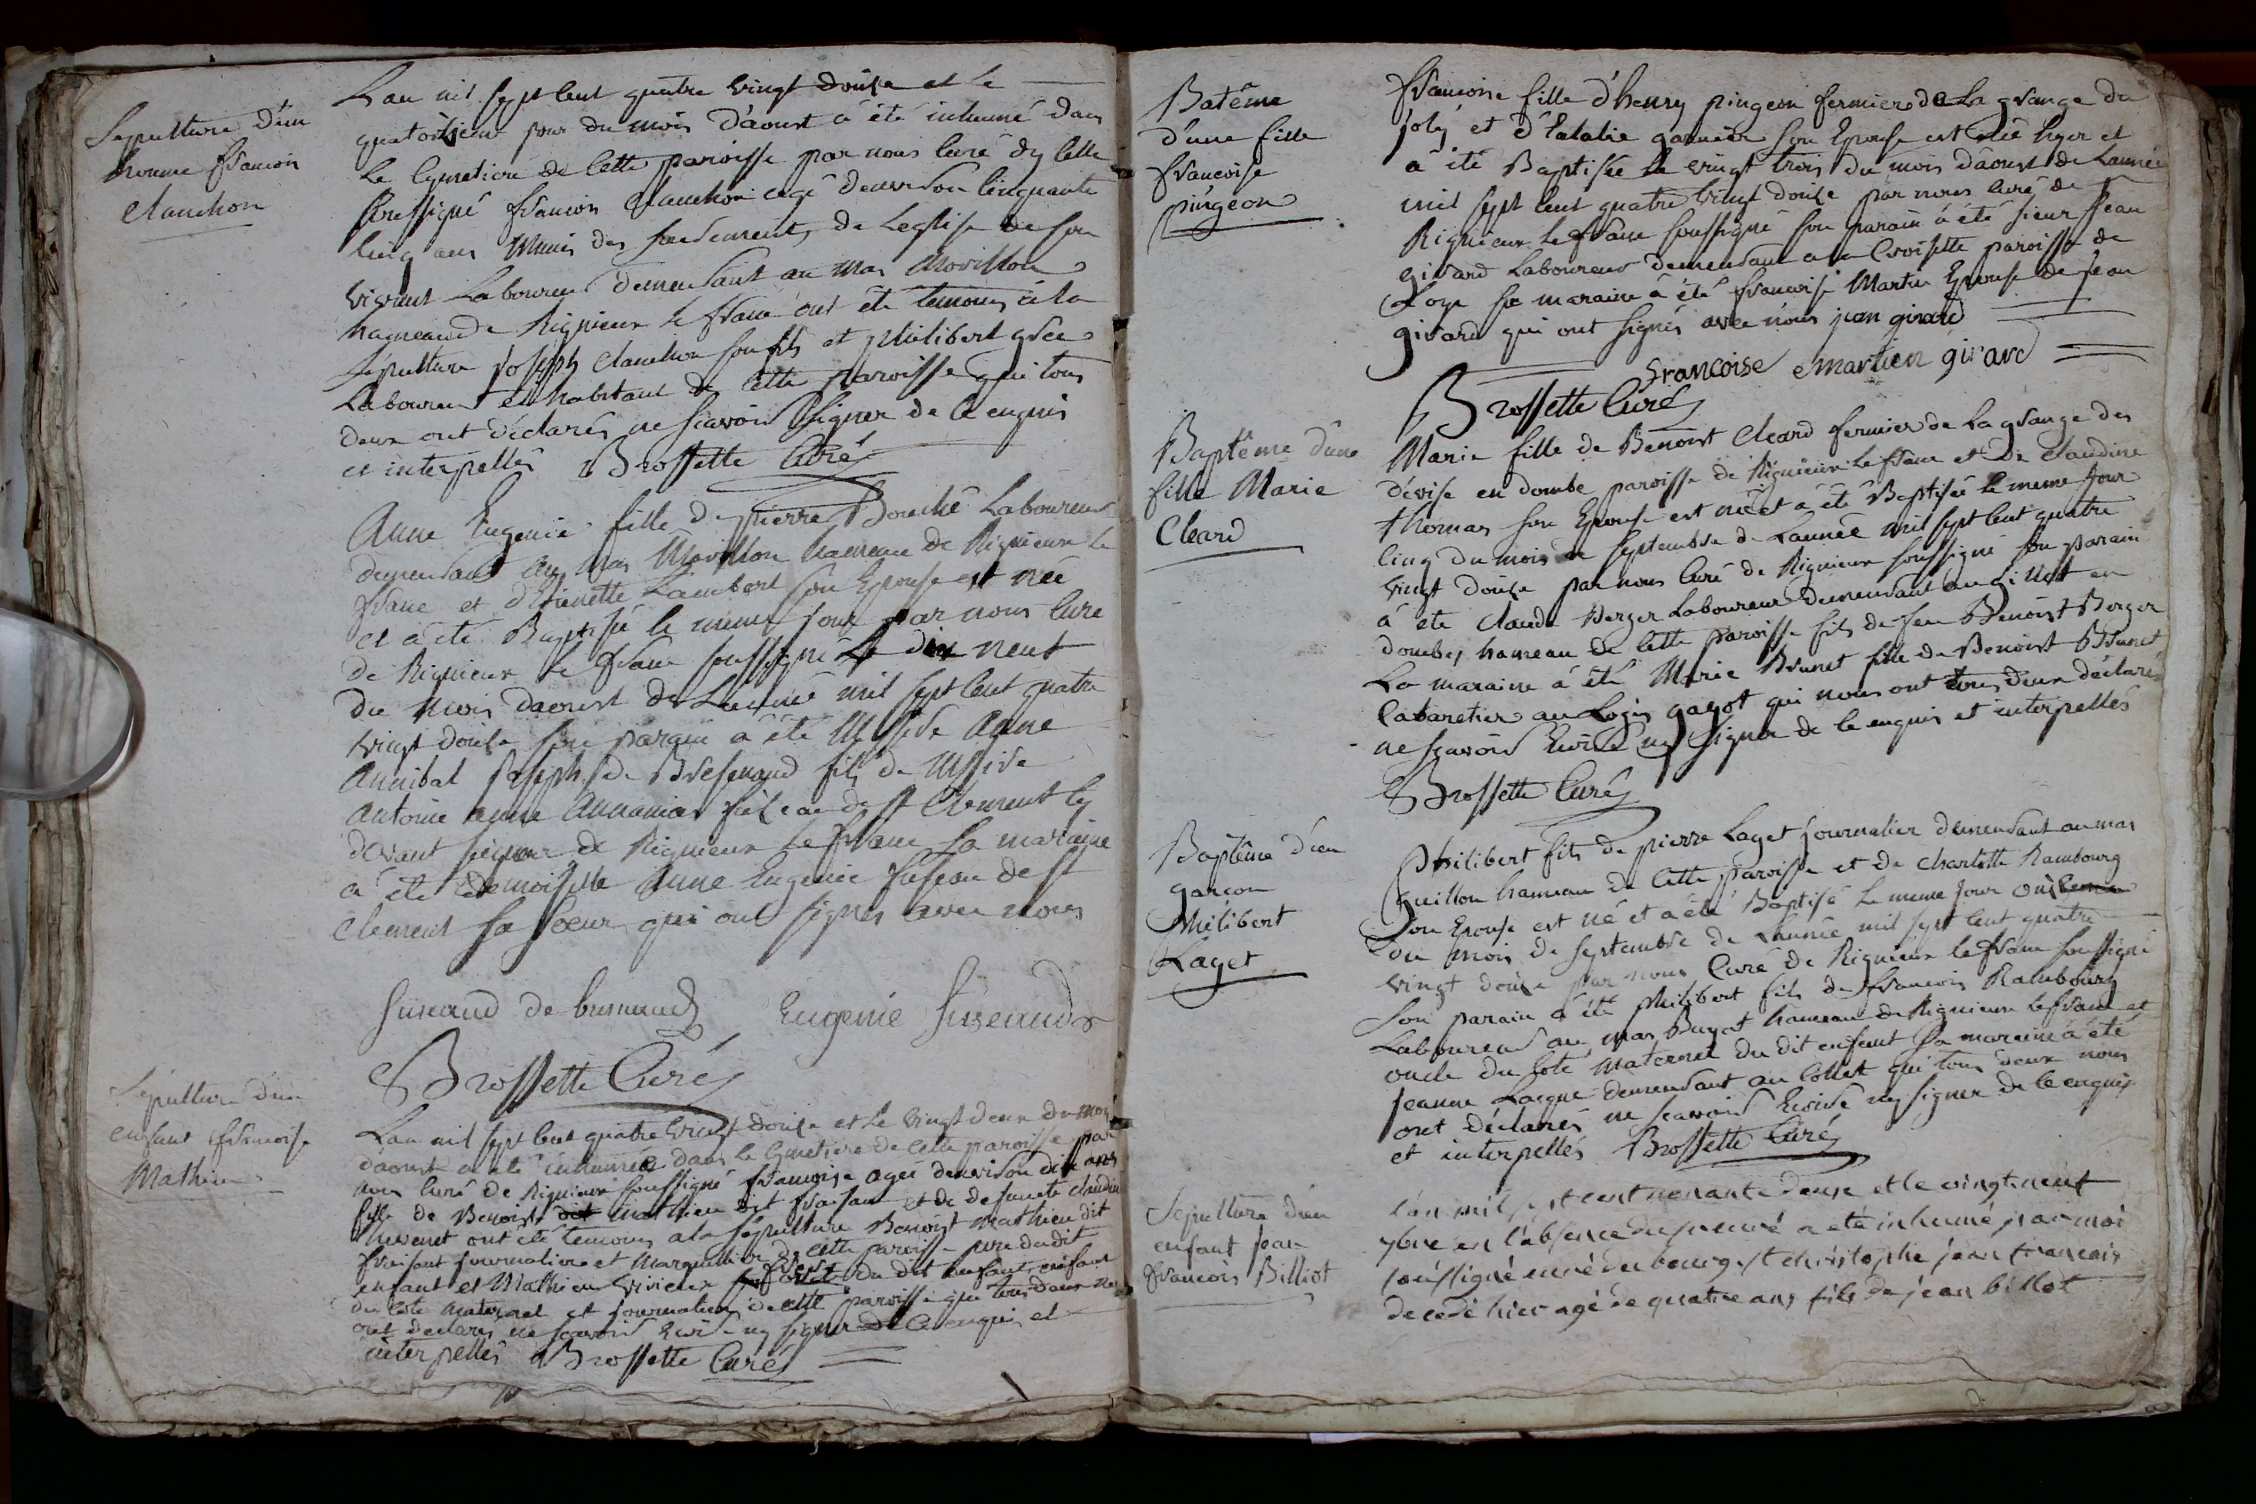 Sepulture d'un
homme francois
clanchon
L'an mil sept cent quatre vingt douze et le
quatorzieme jour du mois d'aoust à été inhumé dans
le Cymetiere de cette paroisse par nous curé dy celle
soussigné francois Clanchon agé denviron cinquante
cinq ans Munis des sacrements de Leglise de son
vivant Laboureur demeurant au Mas Morillon
hameau de Rignieux le franc ont été temoins à la
sepulture joseph clanchon son fils et philibert
Laboureur et habitant de cette paroisse qui tous
deux ont déclarés ne scavoir signer de ce enquis
et interpellés Brossette Curé
Anne Eugenie fille de pierre Bouché Laboureur
demeurant au Mas Morillon hameau de Rignieux le
franc et d'Etienette Lambert son Epouse est née
et à été Baptisé le même jour par nous Curé
de Rignieux le franc soussigné Le dix neuf
du mois daoust de Lannée mil sept cent quatre
vingt douze son parain à été Messire Anne
Annibal joseph de Bresenaud fils de Messire
Antoine anne Annanias de st Clement cy
devant seigneur de Rignieux le franc La maraine
a été demoiselle Anne Eugenie de st
Clement sa soeur qui ont signés avec nous
Eugenie
Brossette Curé
Sépulture d'un
enfant francoise
Mathieu
L'an mil sept cent quatre vingt douze et le vingt deux du mois
d'aoust a été inhumée dans le Cymetiere de cette paroisse par
nous curé de Rignieux soussigné francoise agée denviron dix ans
fille de Benoist dit mathieu dit fraisant et de defuncte claudine
thevenet ont été temoins a la sepulture Benoist mathieu dit
fraisant journalier et Marguillier de cette paroisse pere dudit
enfant et Mathieu Vivieux frere du dit enfant
du coté maternel et journalier de cette paroisse qui tous deux nous
ont declarés ne scavoir Ecrire ny signer de ce enquis et
interpellés Brossette Curé
Batême
d'une fille
francoise
pingeon
francoise fille d'henry pingeon fermier de La grange du
joly et d'Eulalie garnier son Epouse est née hyer et
à été Baptisée le vingt trois du mois d'aoust de Lannée
mil sept cent quatre vingt douze par nous curé de
Rignieux le franc soussigné son parain à été sieur jean
girard Laboureur demeurant a la Croisette paroisse de
Loye sa maraine à été francoise Martin Epouse de jean
girard qui ont signés avec nous jean girard
francoise martien girard
Brossette Curé
Baptême d'une
fille Marie
Cleard
Marie fille de Benoist Cleard fermier de La grange des
dévise en dombe paroisse de Rignieux le franc et de claudine
thomas son Epouse est née et à été Baptisée le meme jour
cinq du mois de septembre de Lannée mil sept cent quatre
vingt douze par nous Curé de Rignieux soussigné son parain
à été claude Berger Laboureur demeurant au Gillet en
dombes hameau de cette paroisse fils de feu Benoist Berger
La maraine à été Marie Brunet fille de Benoist Brunet
Cabaretier au Logis gagot qui nous ont tous deux déclarés
ne scavoir Ecrire ny signer de ce enquis et interpellés
Brossette Curé
Baptême d'un
garçon
Philibert
Laget
Philibert fils de pierre Laget journalier demeurant au mas
Guillon hameau de cette paroisse et de charlotte Rambourg
son Epouse est né et a été Baptisé le meme jour
du mois de septembre de Lannée mil sept cent quatre
vingt douze par nous Curé de Rignieux le franc soussigné
son parain à été philibert fils de francois Rambourg
Laboureur au mas Bugot hameau de Rignieux le franc et
oncle du coté maternel du dit enfant sa maraine à été
jeanne Lacque demeurant au Collet qui tous deux nous
ont déclarés ne scavoir Ecrire ny signer de ce enquis
et interpellés Brossette Curé
Sepulture d'un
enfant jean
francois Billiot
l'an mil sept cent nonante deux et le vingt neuf
7bre en l'absence du sr curé a été inhumé par moi
soussigné curé du bourg st christophe jean francois
decedé hier agé de quatre ans fils de jean billot